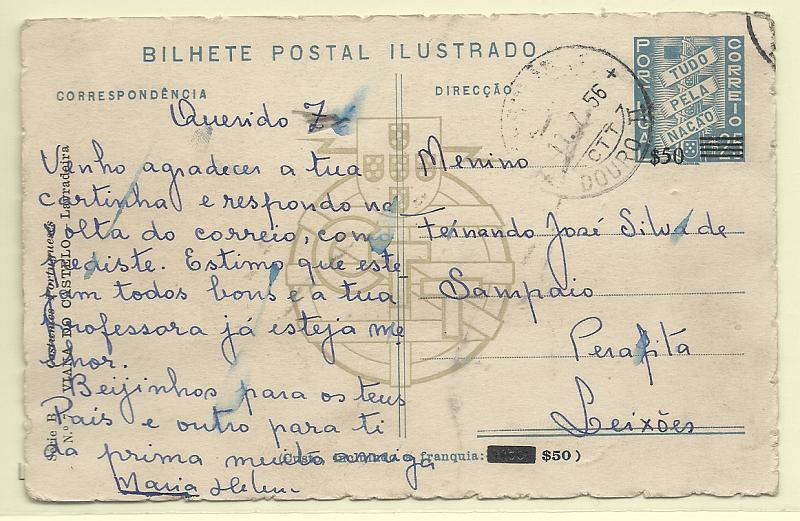 BILHETE POSTAL ILUSTRADO
CORRESPONDÊNCIA
Querido Z
Venho agradecer a tua
cartinha e respondo na
volta do correio, como
pediste. Estimo que este
jam todos bons e a tua
professora já esteja me
lhor.
Beijinhos para os teus
Pais e outro para ti
da prima muito amiga
Maria Helena
Série B Costumes Portugueses
N.º 7 VIANA DO CASTELO - Lavradeira
DIRECÇÃO
Menino
Fernando José Silva de
Sampaio
Perafita
Leixões
franquia: $50)
CORREIO
PORTUGAL
TUDO
PELA
NAÇÃO
$50
56
CTT
DOURO